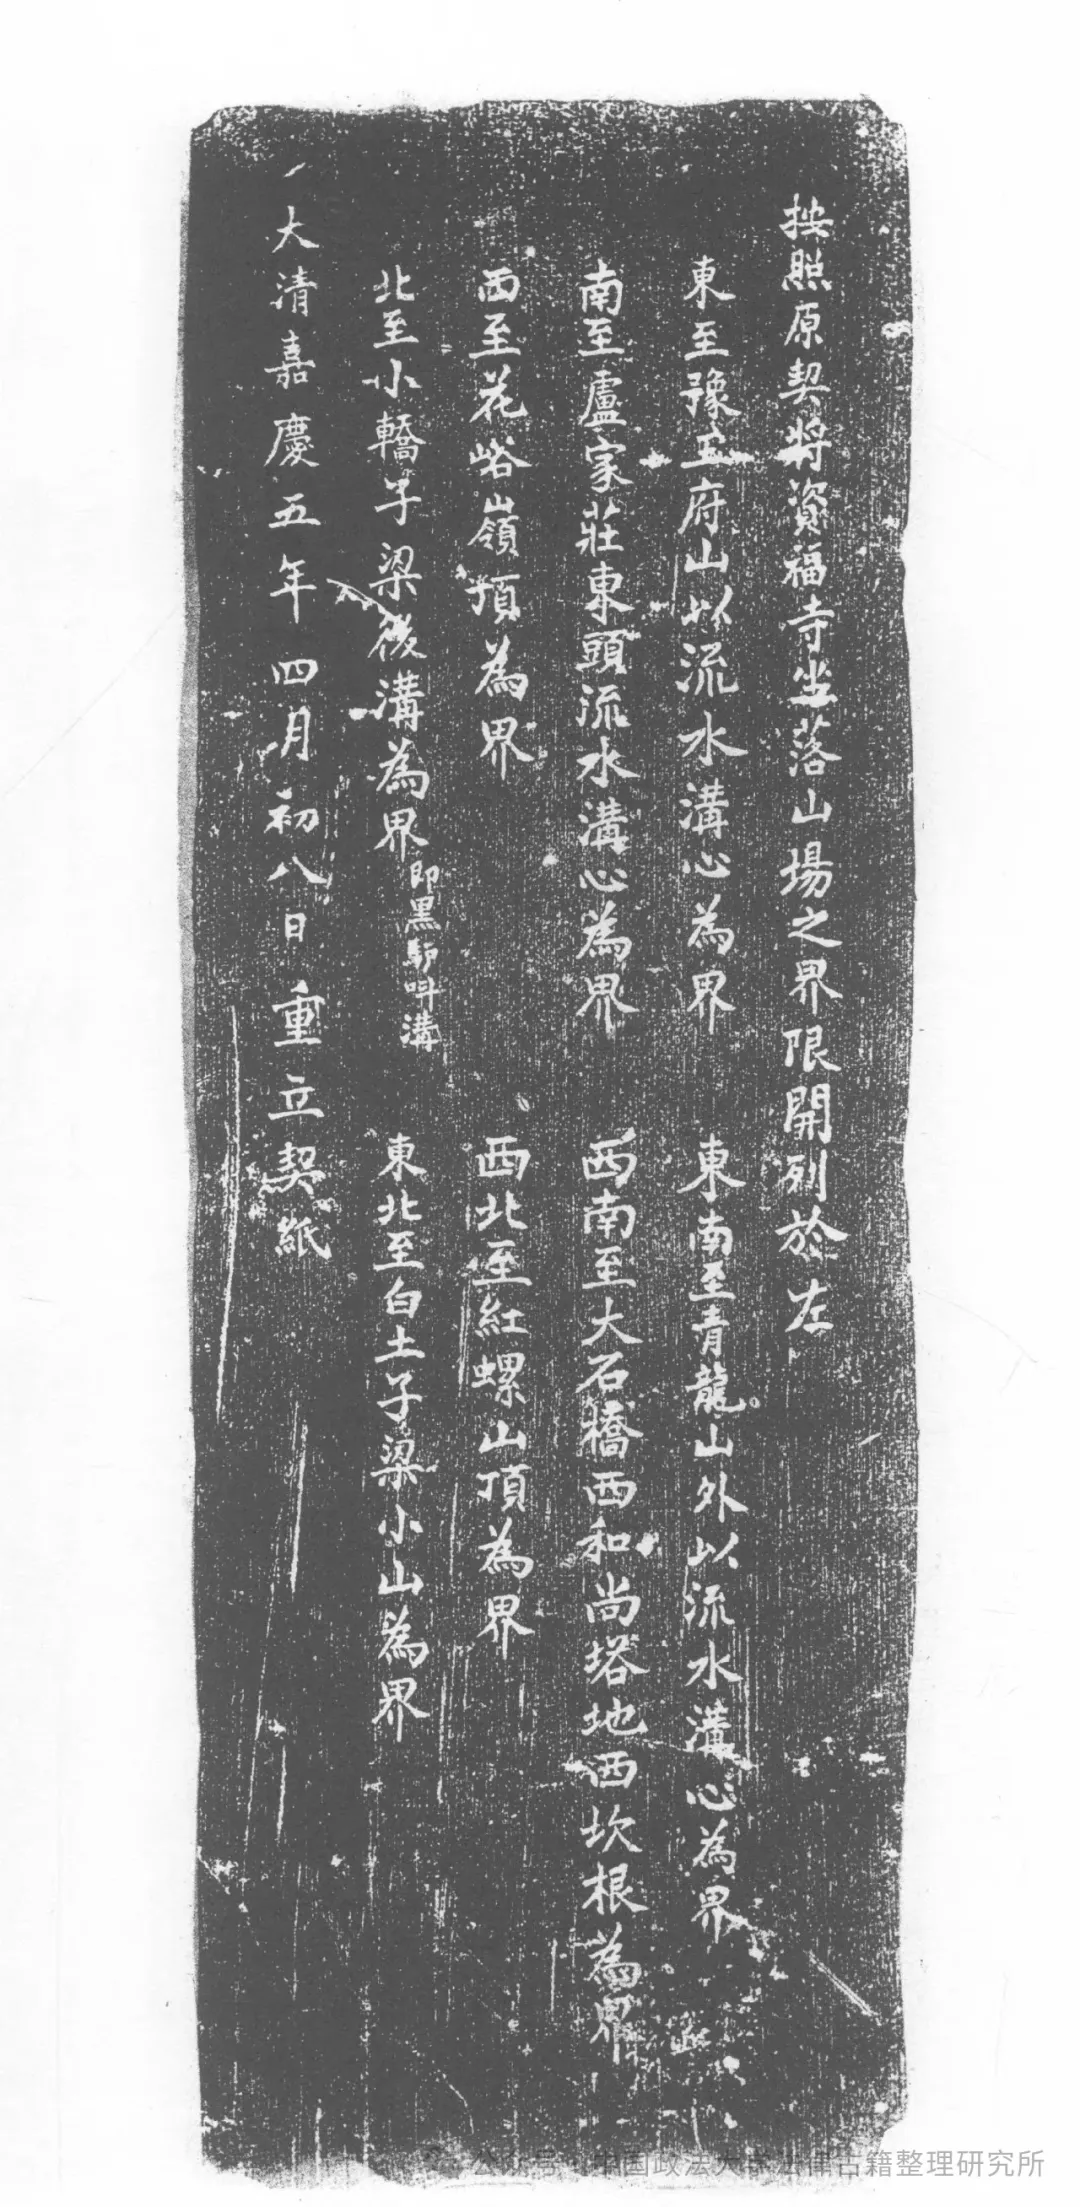 按照原契將資福寺坐落山場之界限開列於左
東至豫王府山以流水溝心為界　東南至青龍山外以流水溝心為界
南至盧家莊東頭流水溝心為界　西南至大石橋西和尚塔地西坎根為界
西至花峪嶺頂為界　西北至紅螺山頂為界
北至小轎子梁後溝為界即黑驴呌溝　東北至白土子梁小山為界
大清嘉慶五年四月初八日重立契紙
公众号 中国政法大学法律古籍整理研究所